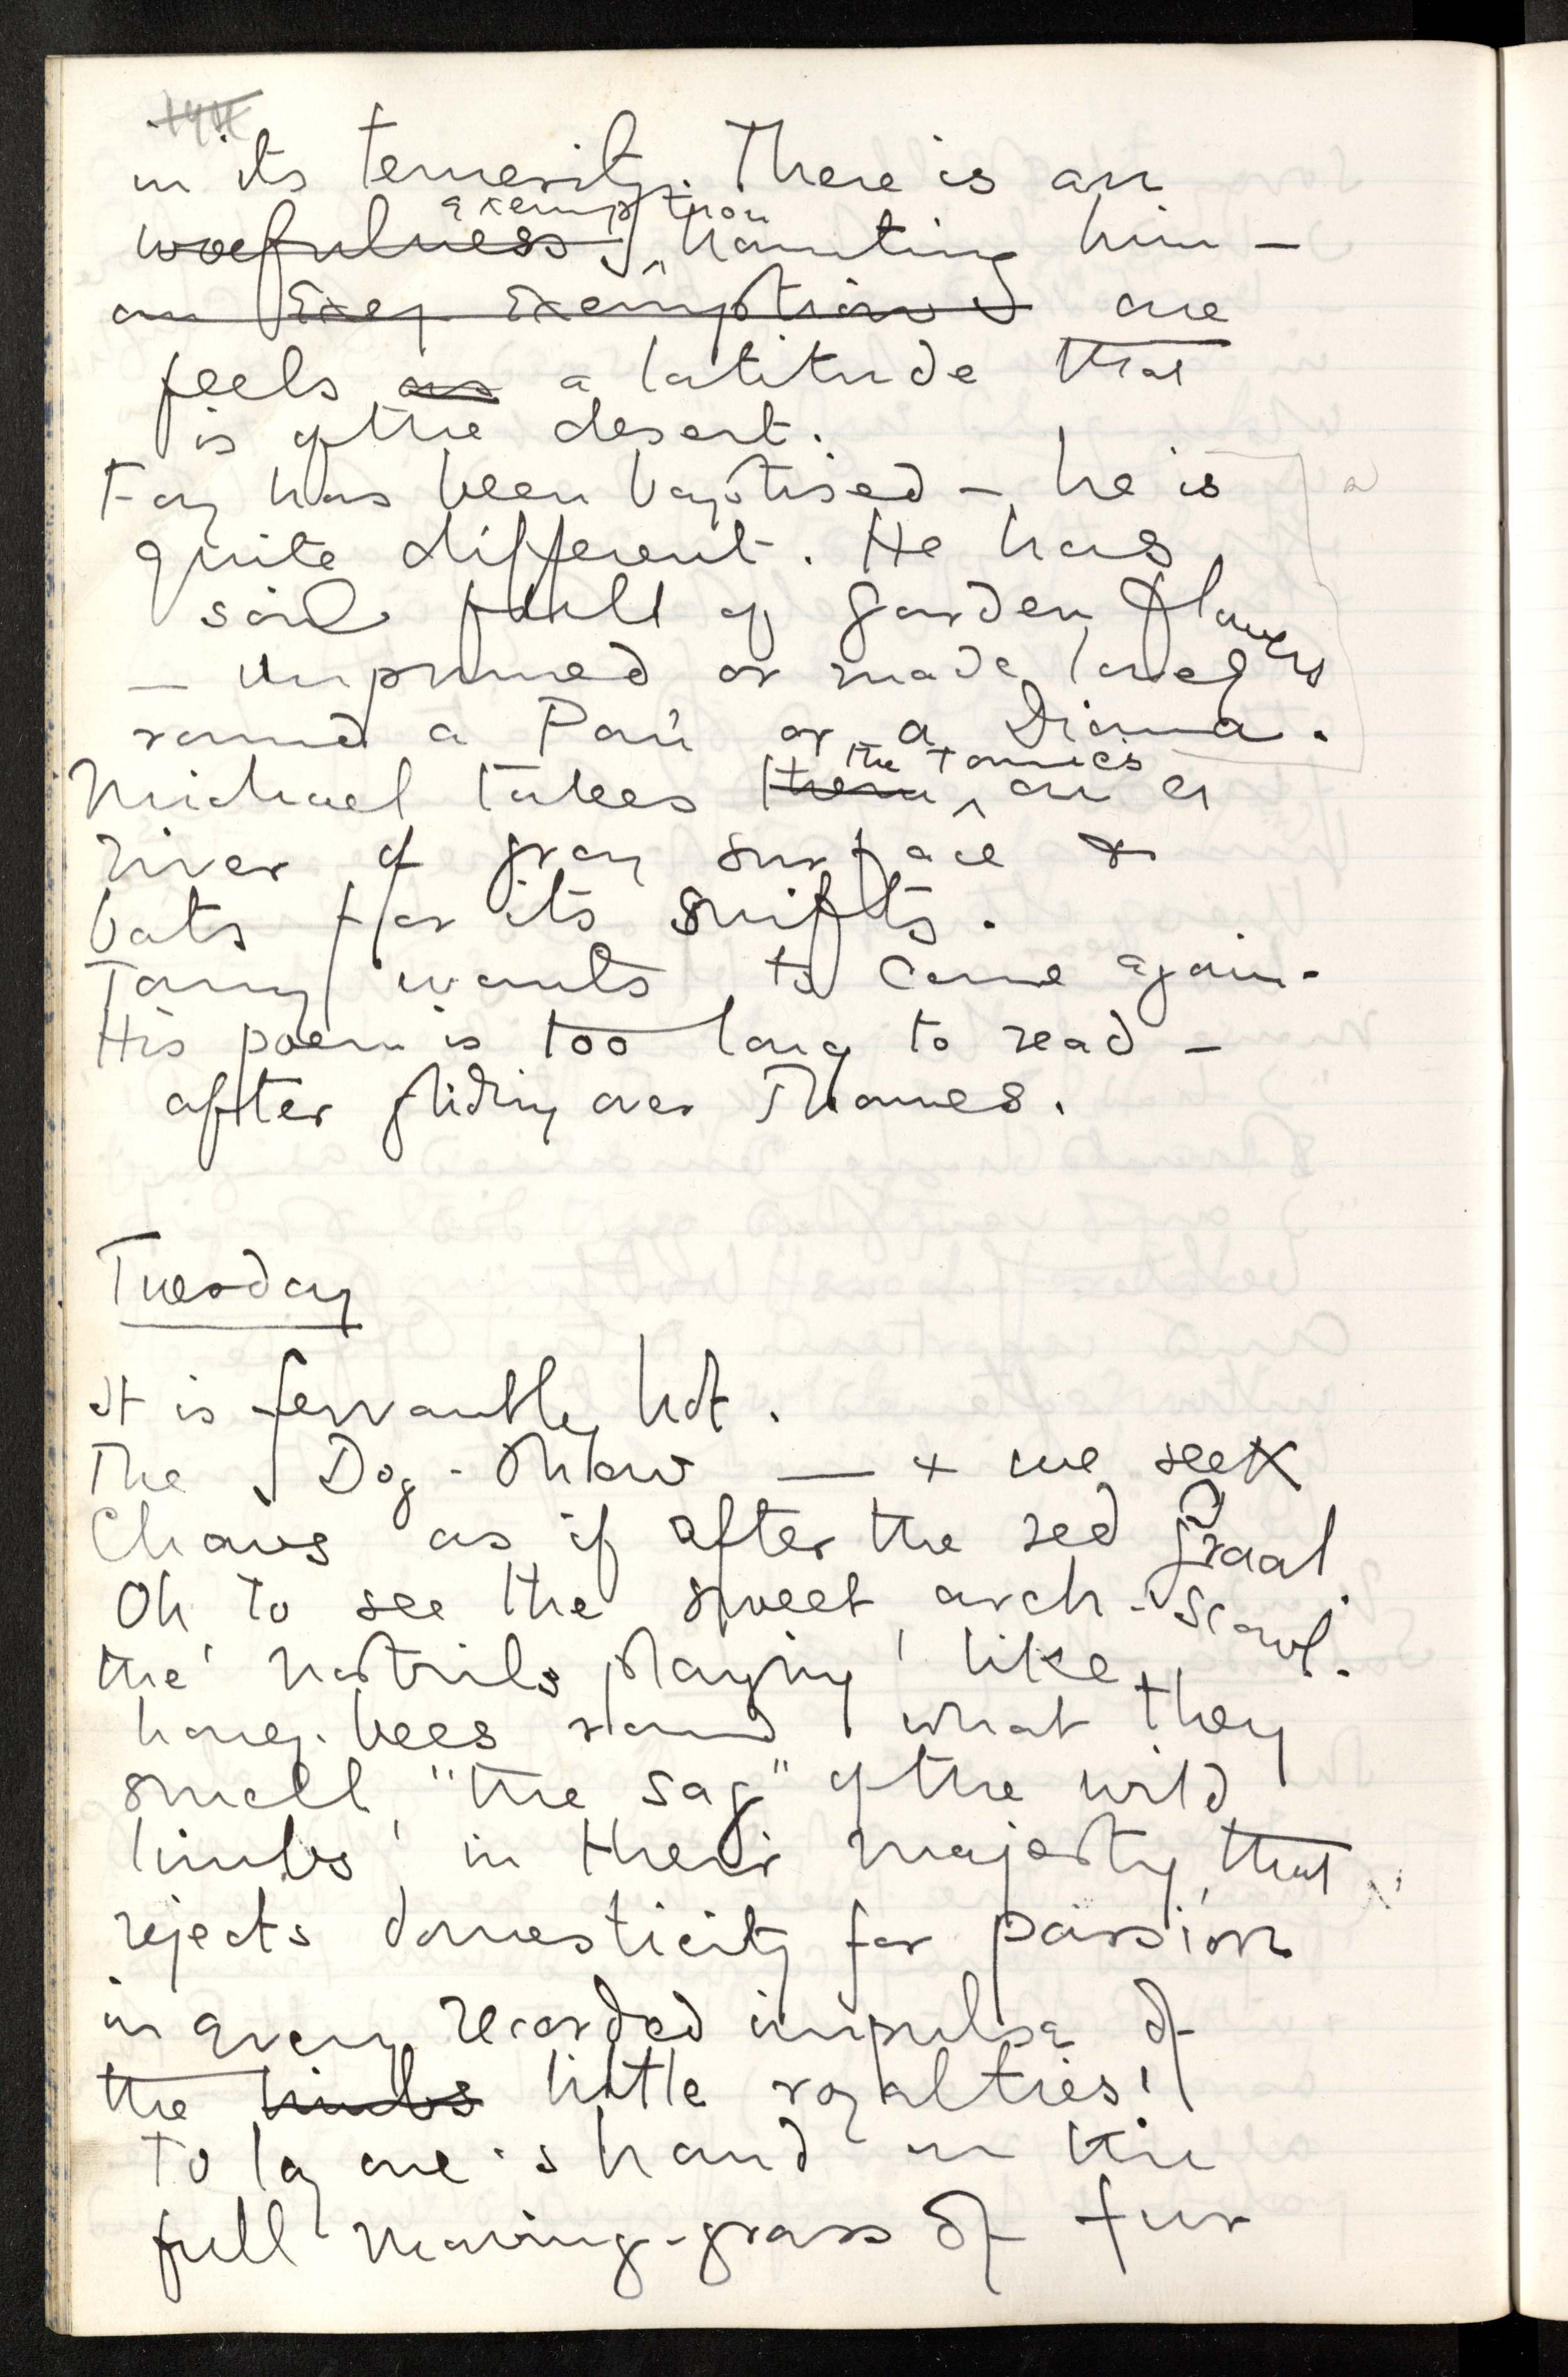 in its temerity. There is an
~~woefulness~~, exemption haunting him –
~~an Exep Exemption &~~ one
feels ~~as~~ a latitude that
is of the desert.
Tony has been baptised – he is
quite different. He has
soil full of garden flowers
– unpruned or made lovely
round a Pan or a Diana.
Michael takes ~~them~~ the Tommies on a
river of gray surface &
bats for its swifts.
Tommy wants to come again.
His poem is too long to read –
after gliding over Thames.
Tuesday
It is fervantly hot.
The Dog-Show — + we seek
Chows as if after the red Graal.
Oh to see the sweet arch-scowl.
the nostrils playing like
honey-bees round what they
smell, "the sag" of the wild
limbs in their majesty, that
rejects domesticity for passion
in every recorded impulse of
the ~~limbs~~ little royalties!
To lay one's hand in the
full moving-grass of fur